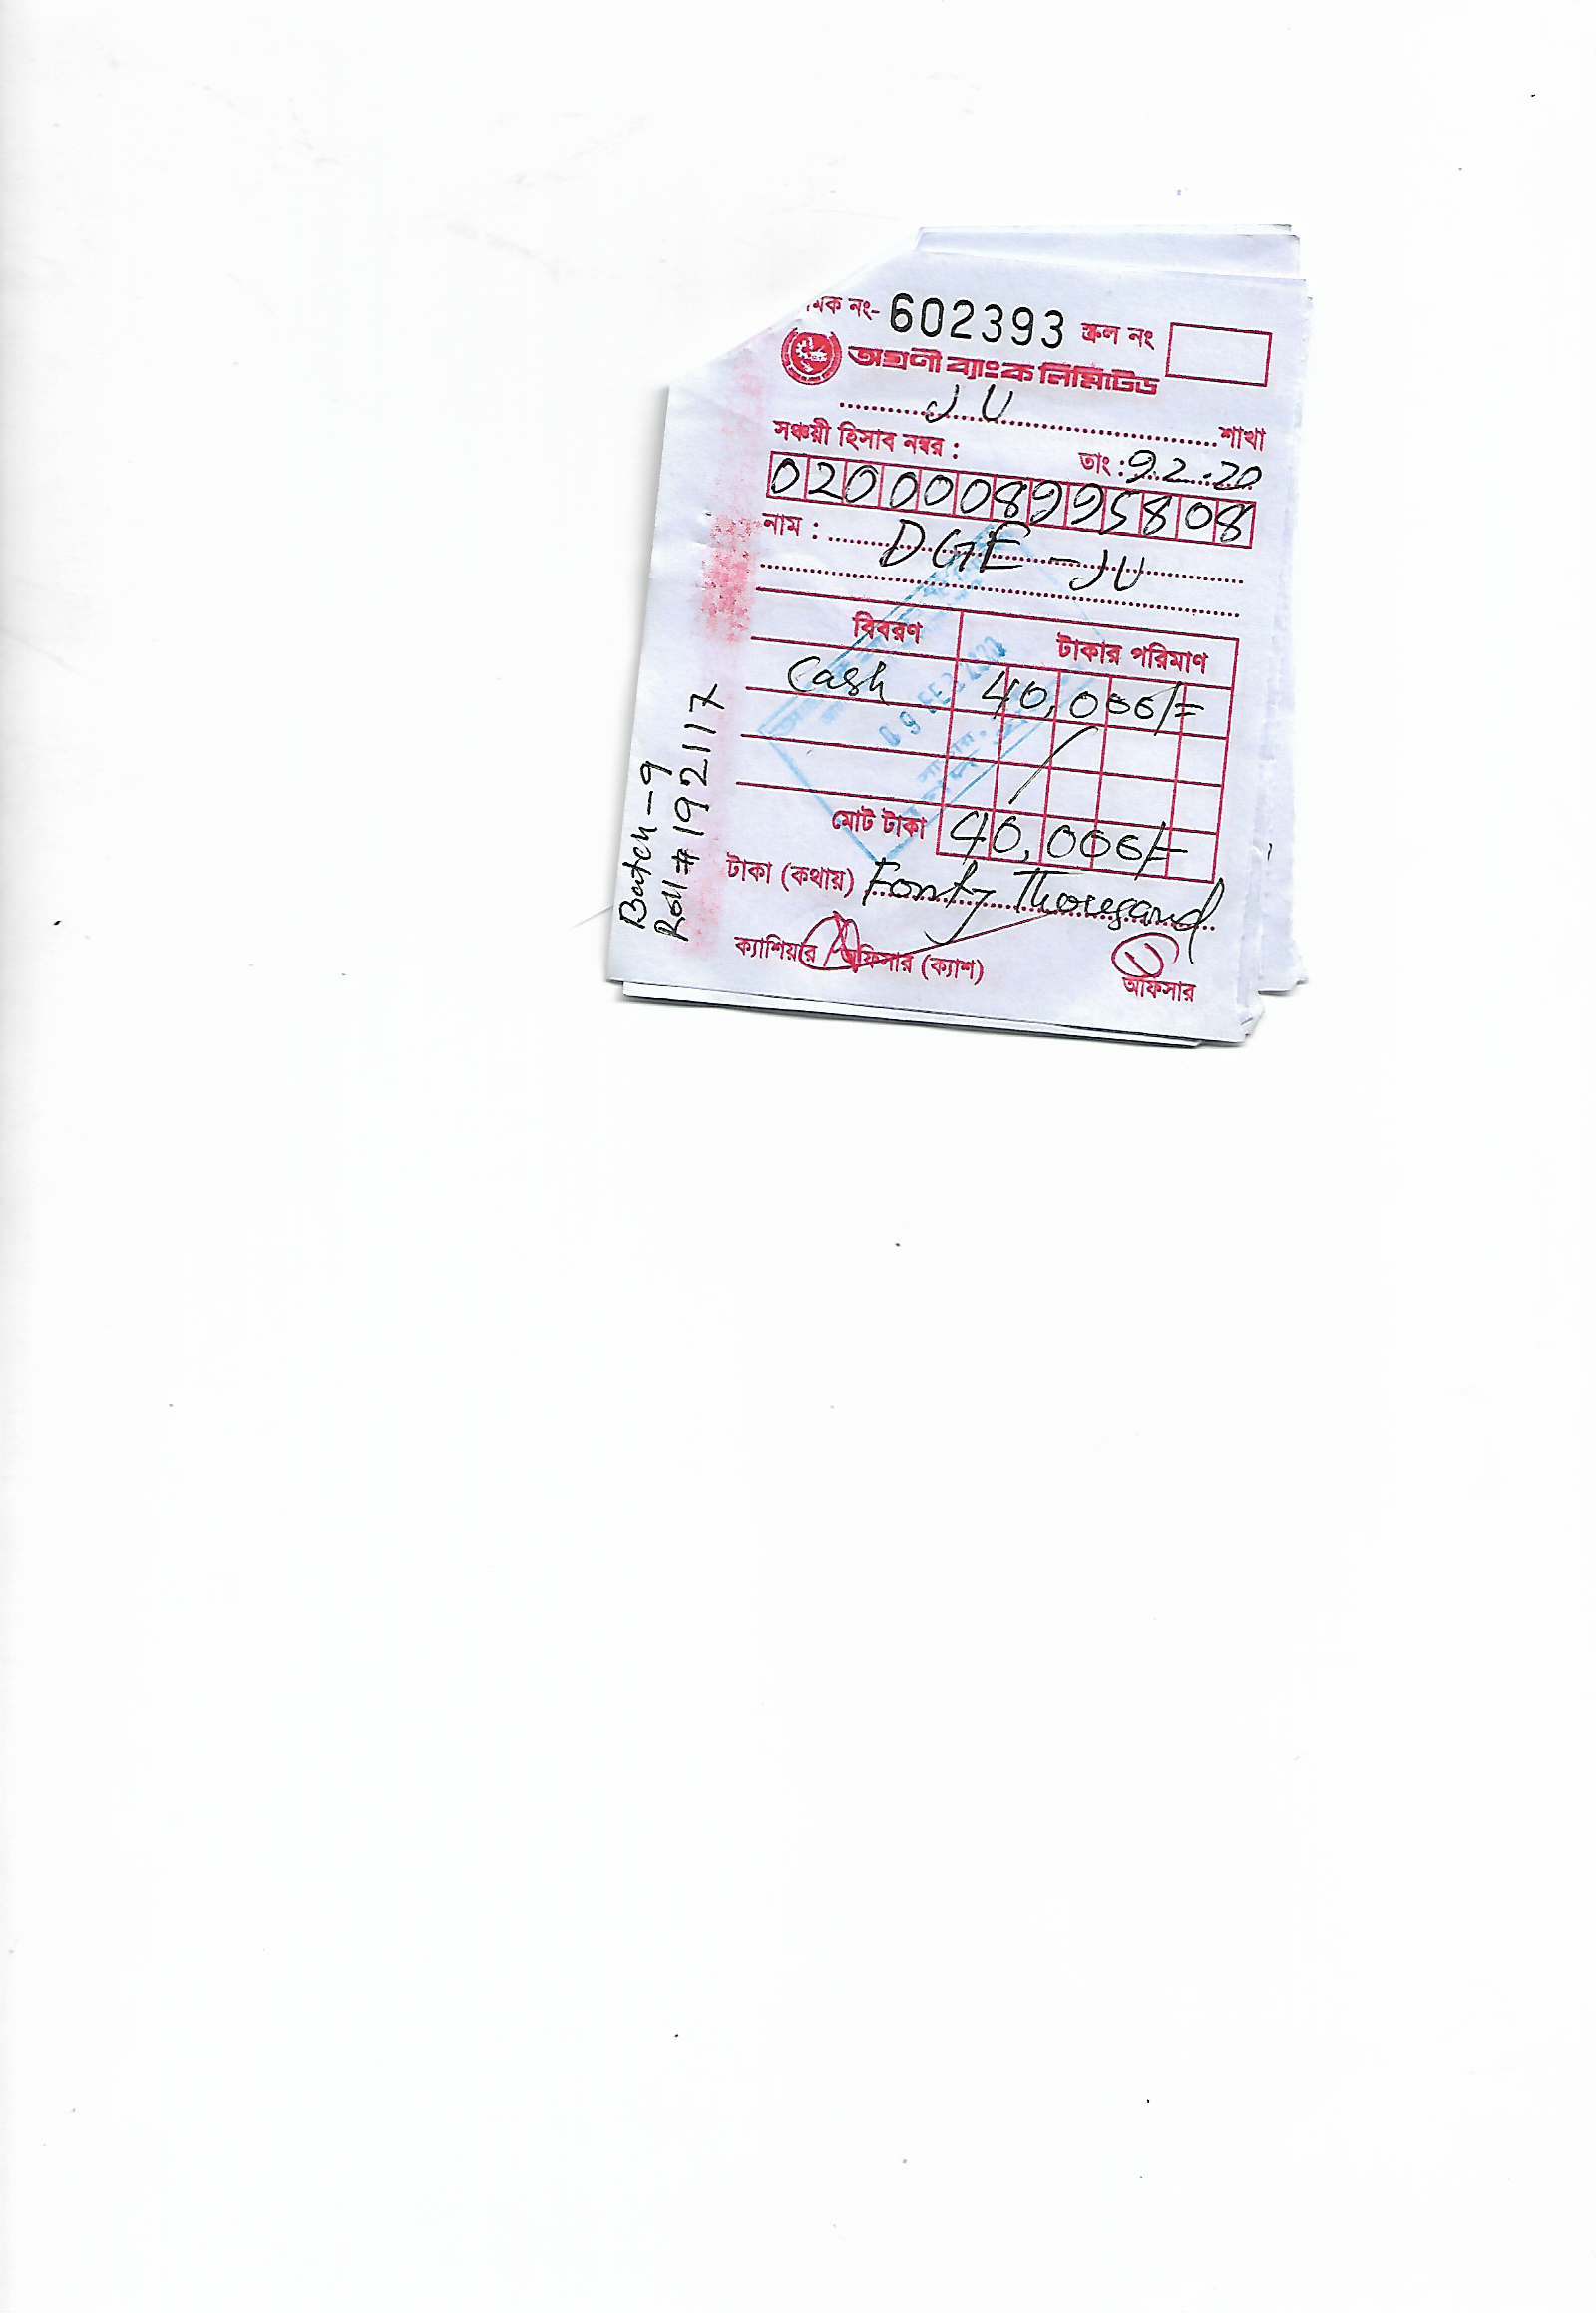 মিক নং- 602393 স্ক্রল নং
অগ্রণী ব্যাংক লিমিটেড
JU শাখা
সঞ্চয়ী হিসাব নম্বর :
তাং : 9.2.20
0200008995808
নাম : DGE - JU
বিবরণ টাকার পরিমাণ
Cash 40,000/=
09 FEB 2020
মোট টাকা 40,000/=
টাকা (কথায়) Forty Thousand
ক্যাশিয়ার / অফিসার (ক্যাশ)
অফিসার
Batch - 9
Roll # 192117